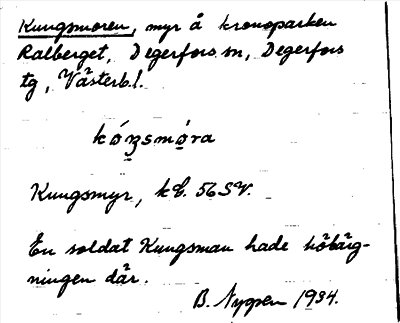 Kungsmoren, myr å kronoparken
Ralberget, Degerfors sn, Degerfors
tg, Västerb.l.
kóŋsmo̱ra
Kungsmyr, kE. 56SV.
En soldat Kungsman hade höbärg-
ningen där.
B. Nygren 1934.